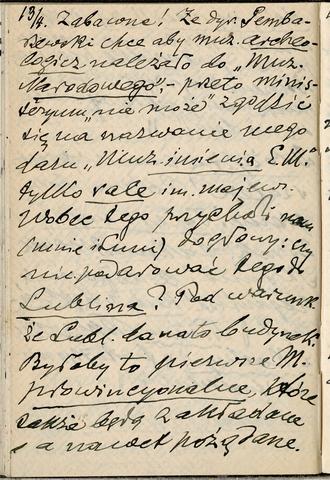 13/4. Zabawne! Że dyr. Pemba-
rzewski chce aby muz. archeo-
logicz. należało do „Muz.
Narodowego", – przeto minis-
terjum „nie może" zgodzić
się na nazwanie mego
daru „Muz. imienia E.M."
tylko sale im. Majew.
Wobec tego przychodzi nam
(mnie i ) do głowy: czy
nie podarować tego do
Lublina? Pod warunk.
że Lubl. da na to budynek.
Byłoby to pierwsze M.
prowincyonalne, które
także będą zakładane
a nawet pożądane.